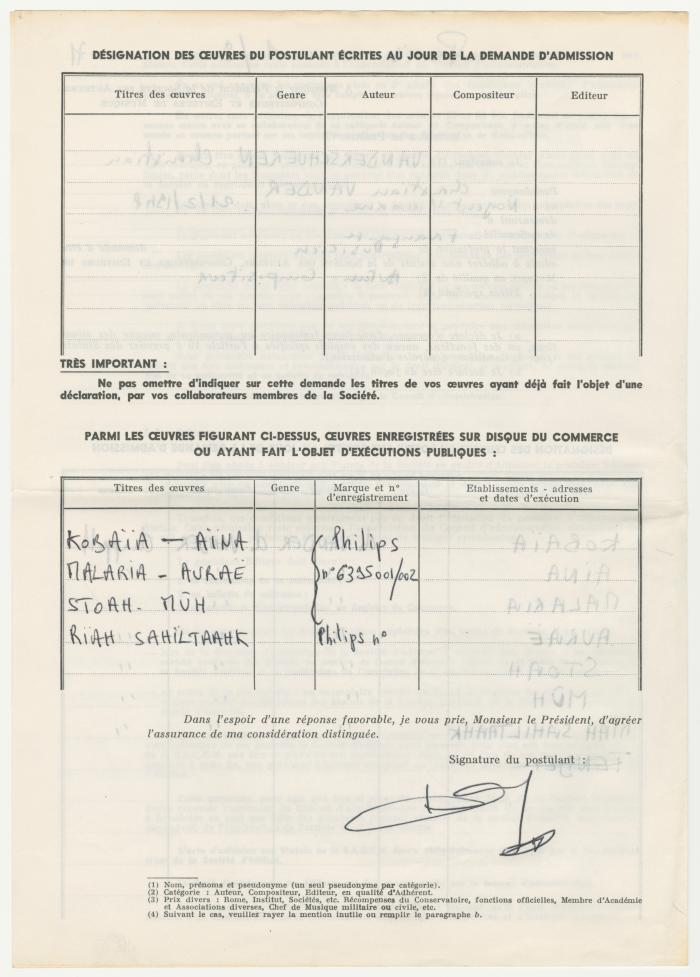 DÉSIGNATION DES ŒUVRES DU POSTULANT ÉCRITES AU JOUR DE LA DEMANDE D'ADMISSION
Titres des œuvres Genre Auteur Compositeur Editeur
TRÈS IMPORTANT :
Ne pas omettre d'indiquer sur cette demande les titres de vos œuvres ayant déjà fait l'objet d'une
déclaration, par vos collaborateurs membres de la Société.
PARMI LES ŒUVRES FIGURANT CI-DESSUS, ŒUVRES ENREGISTRÉES SUR DISQUE DU COMMERCE
OU AYANT FAIT L'OBJET D'EXÉCUTIONS PUBLIQUES :
Titres des œuvres Genre Marque et n° d'enregistrement Etablissements - adresses et dates d'exécution
KOBAÏA — AÏNA Philips
MALARIA - AURAË n° 6395001/002
STOAH - MŪH
RÏAH SAHÏLTAAHK Philips n°
Dans l'espoir d'une réponse favorable, je vous prie, Monsieur le Président, d'agréer
l'assurance de ma considération distinguée.
Signature du postulant :
(1) Nom, prénoms et pseudonyme (un seul pseudonyme par catégorie).
(2) Catégorie : Auteur, Compositeur, Editeur, en qualité d'Adhérent.
(3) Prix divers : Rome, Institut, Sociétés, etc. Récompenses du Conservatoire, fonctions officielles, Membre d'Académie
et Associations diverses, Chef de Musique militaire ou civile, etc.
(4) Suivant le cas, veuillez rayer la mention inutile ou remplir le paragraphe b.